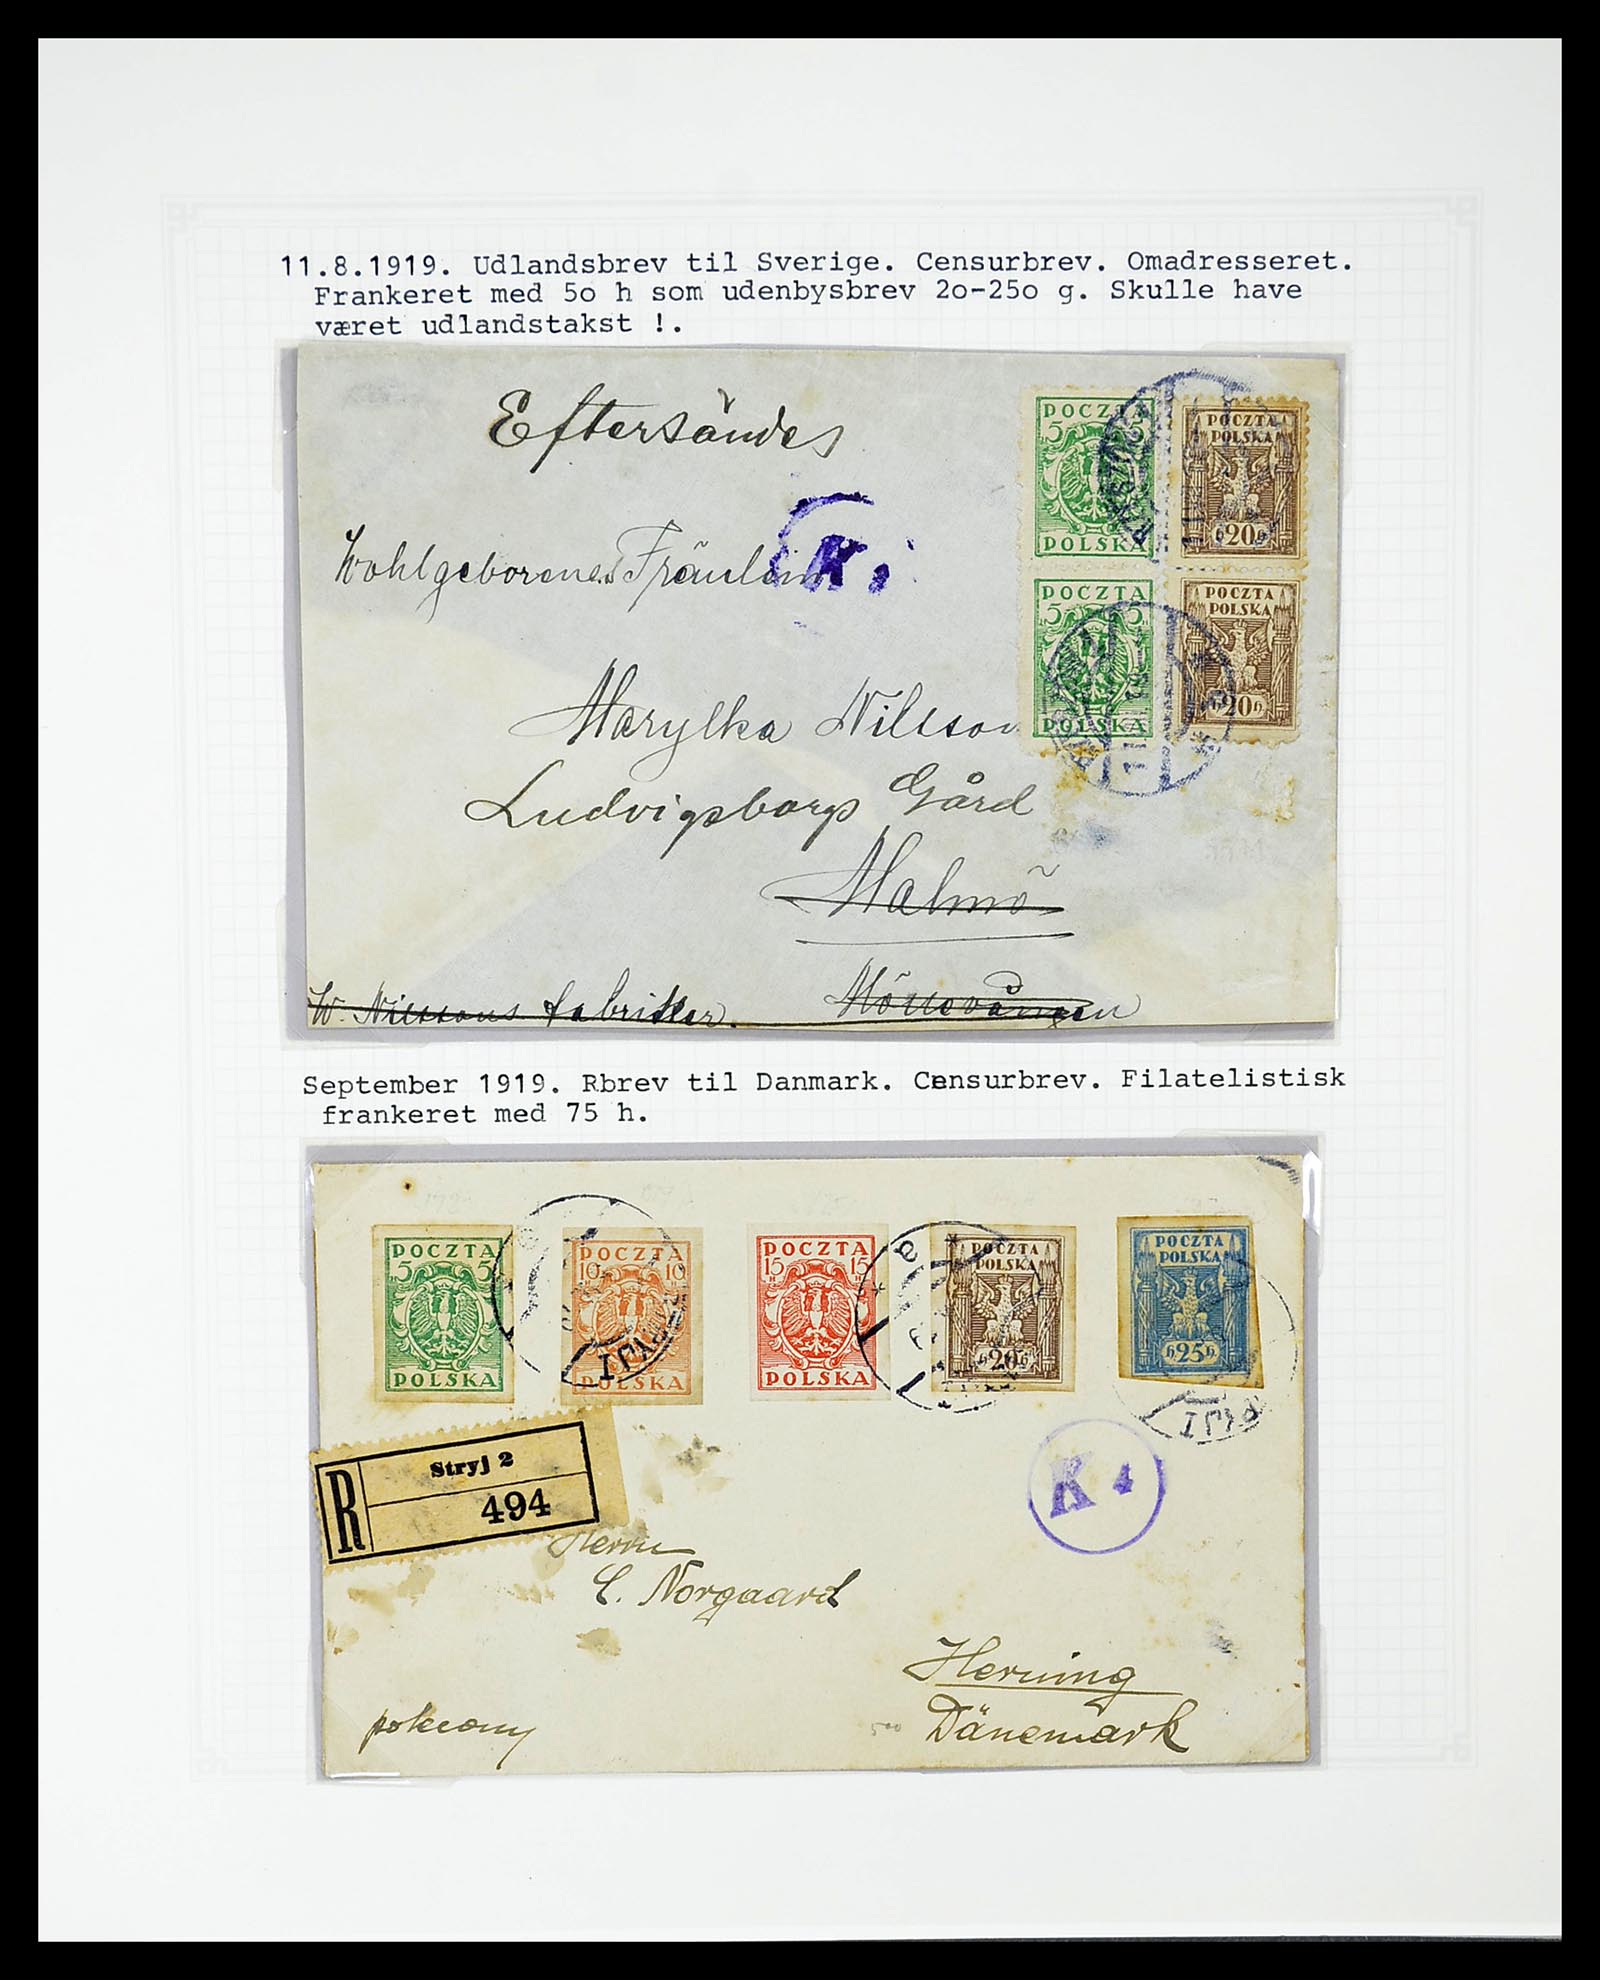 11.8.1919. Udlandsbrev til Sverige. Censurbrev. Omadresseret.
Frankeret med 5o h som udenbysbrev 2o-25o g. Skulle have
været udlandstakst !.
Eftersändes
POCZTA
5 5
POLSKA
POCZTA
POLSKA
h20h
POCZTA
5 5
POLSKA
POCZTA
POLSKA
h20h
K
Wohlgeborenes Fräulein
Marylka Nilsson
Ludvigsborgs Gård
Malmö
W. Nilssons fabriker.
September 1919. Rbrev til Danmark. Censurbrev. Filatelistisk
frankeret med 75 h.
POCZTA
5 5
POLSKA
POCZTA
10 10
POLSKA
POCZTA
15 15
H H
POLSKA
POCZTA
POLSKA
h20h
POCZTA
POLSKA
h25h
STRYJ
R
Stryj 2
494
K 4
Herrn
C. Norgaard
Herning
Dänemark
polecony
500